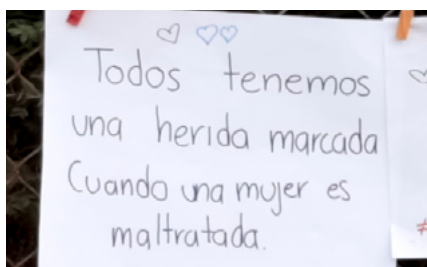 Todos tenemos
una herida marcada
Cuando una mujer es
maltratada.